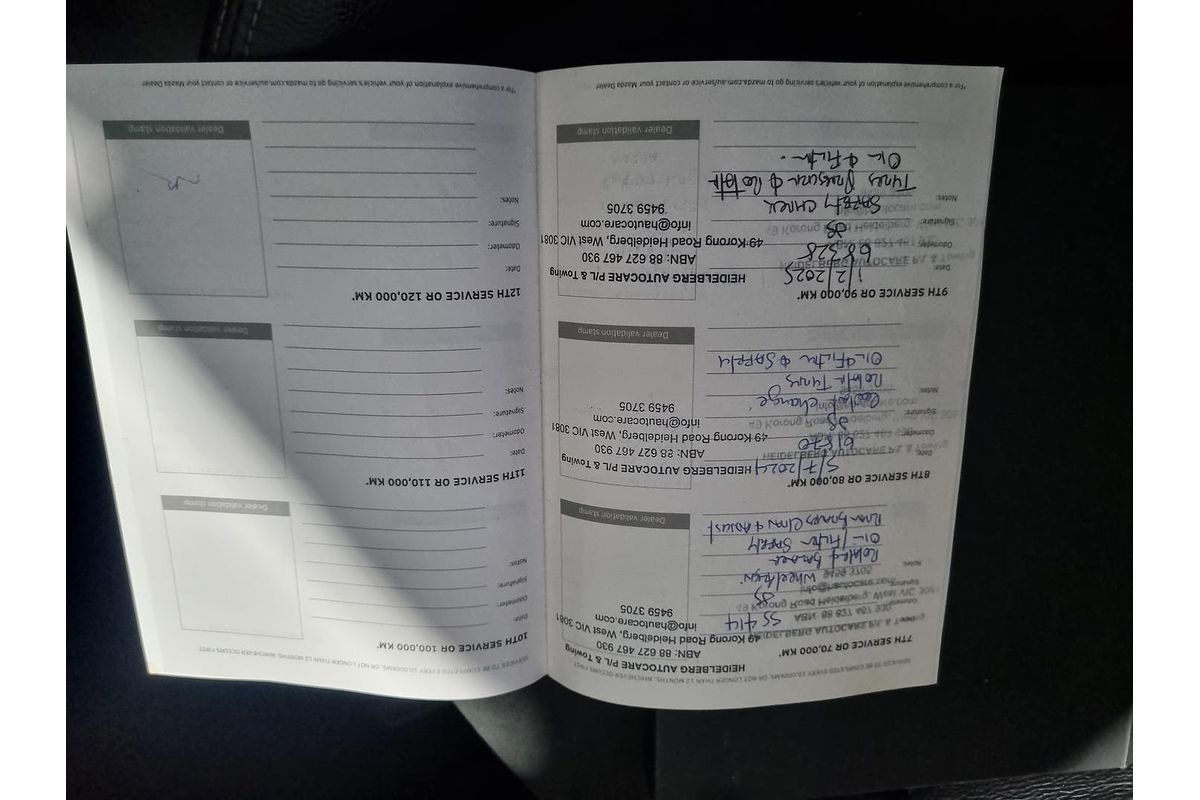 SERVICES TO BE COMPLETED EVERY 10,000KMS, OR NOT LONGER THAN 12 MONTHS, WHICHEVER OCCURS FIRST
7TH SERVICE OR 70,000 KM*
HEIDELBERG AUTOCARE P/L & Towing
ABN: 88 627 467 930
49 Korong Road Heidelberg, West VIC 3081
info@hautocare.com
9459 3705
55414
Wheel
Rotated
Oil/Filter Safety
Rear Brakes Clean & Adjust
Dealer validation stamp
8TH SERVICE OR 80,000 KM*
Date: 5/7/2024
Odometer: 61870
Signature:
Notes: Coolant change
Rotate Tyres
Oil & Filter & Safety
HEIDELBERG AUTOCARE P/L & Towing
ABN: 88 627 467 930
49 Korong Road Heidelberg, West VIC 3081
info@hautocare.com
9459 3705
Dealer validation stamp
9TH SERVICE OR 90,000 KM*
Date: 1/2/2025
Odometer: 68328
Signature:
Notes: Safety check
Tyres Pressure & Rotate
Oil & Filter.
HEIDELBERG AUTOCARE P/L & Towing
ABN: 88 627 467 930
49 Korong Road Heidelberg, West VIC 3081
info@hautocare.com
9459 3705
Dealer validation stamp
*For a comprehensive explanation of your vehicle's servicing go to mazda.com.au/service or contact your Mazda Dealer
SERVICES TO BE COMPLETED EVERY 10,000KMS, OR NOT LONGER THAN 12 MONTHS, WHICHEVER OCCURS FIRST
10TH SERVICE OR 100,000 KM*
Date:
Odometer:
Signature:
Notes:
Dealer validation stamp
11TH SERVICE OR 110,000 KM*
Date:
Odometer:
Signature:
Notes:
Dealer validation stamp
12TH SERVICE OR 120,000 KM*
Date:
Odometer:
Signature:
Notes:
Dealer validation stamp
*For a comprehensive explanation of your vehicle's servicing go to mazda.com.au/service or contact your Mazda Dealer